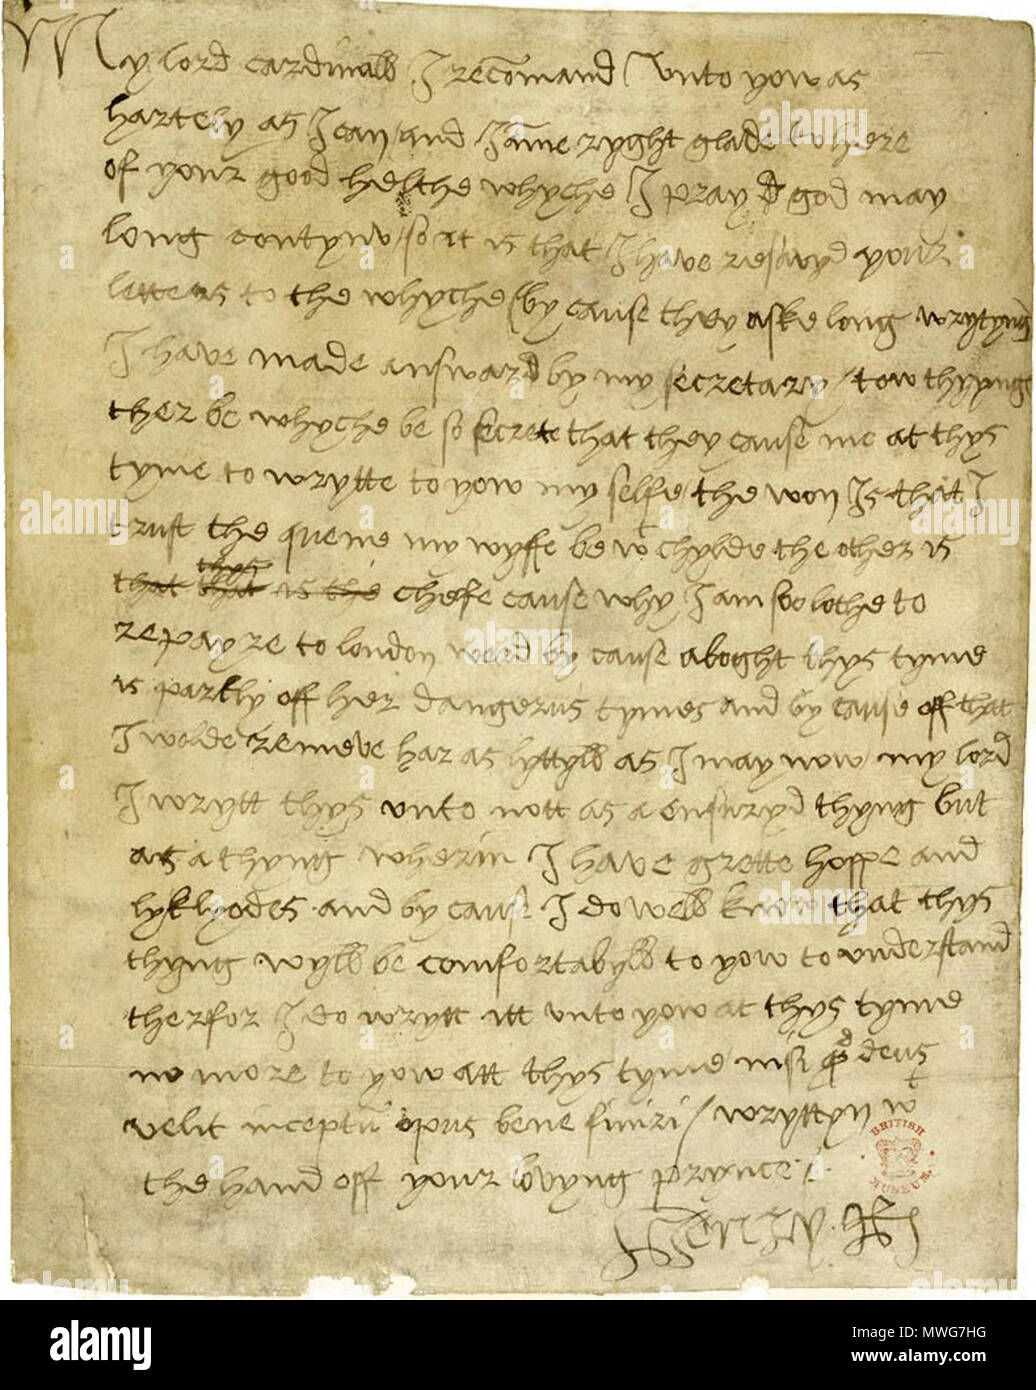 My lord cardinall I recōmand unto yow as
hartely as I can / and I āme ryght glade to here
of your good helthe whyche I pray god may
long contynv / so it is that I have resavyd your
letters to the whyche (by cause they aske long wrytyng)
I have made answard by my secretary / tow thyyngs
ther be whyche be so secrete that they cause me at thys
tyme to wrytte to yow my selfe / the won Is that I
trust the quene my wyffe be wt chylde the other is
thys
that that is the chefe cause why I am soo lothe to
repayre to london werd by cause aboght thys tyme
is partly off her dangerus tymes and by cause off that
I wolde remeve har as lyttyll as I may now / my lord
I wrytt thys unto nott as a ensuryd thyng but
as a thyng wherin I have grette hoppe and
lyklyodes and by cause I do well know that thys
thyng wyll be comfortabyll to yow to understand
therfor I do wrytt itt unto yow at thys tyme
no more to yow att thys tyme / nisi qd deus
velit inceptū opus bene finiri / wryttyn wt
the hand off your lovyng prynce
Henry R
BRITISH MUSEUM
alamy
alamy
Image ID: MWG7HG
www.alamy.com